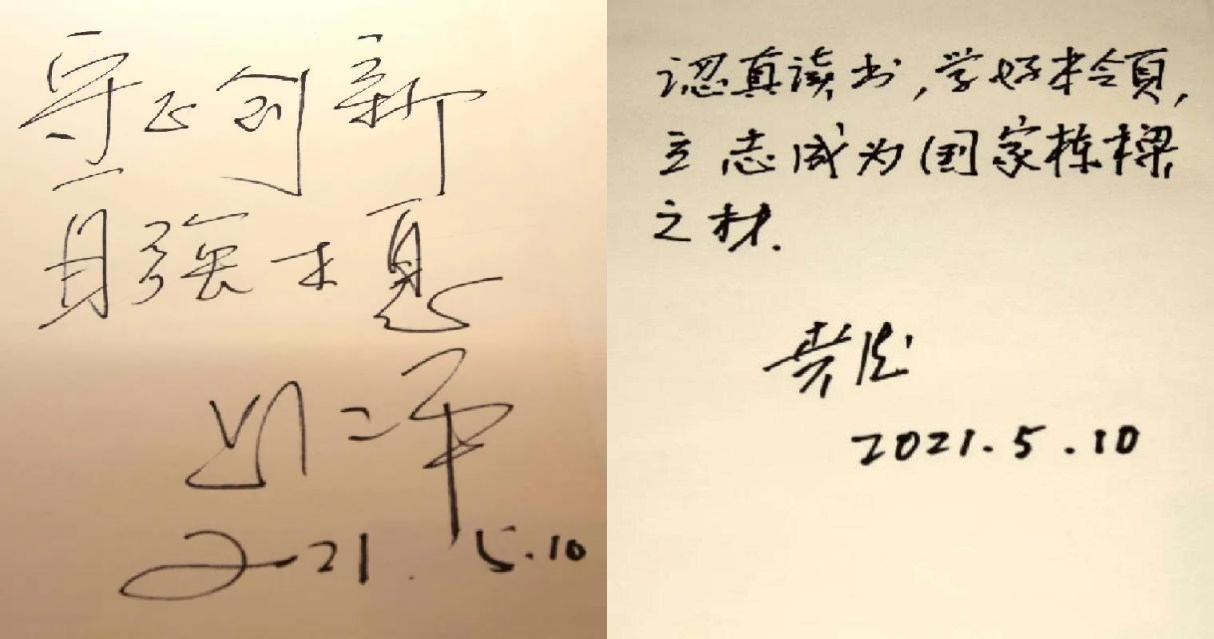 守正创新
自强不息
2021.5.10
認真读书,学好本領,
立志成为国家栋樑
之材.
2021.5.10